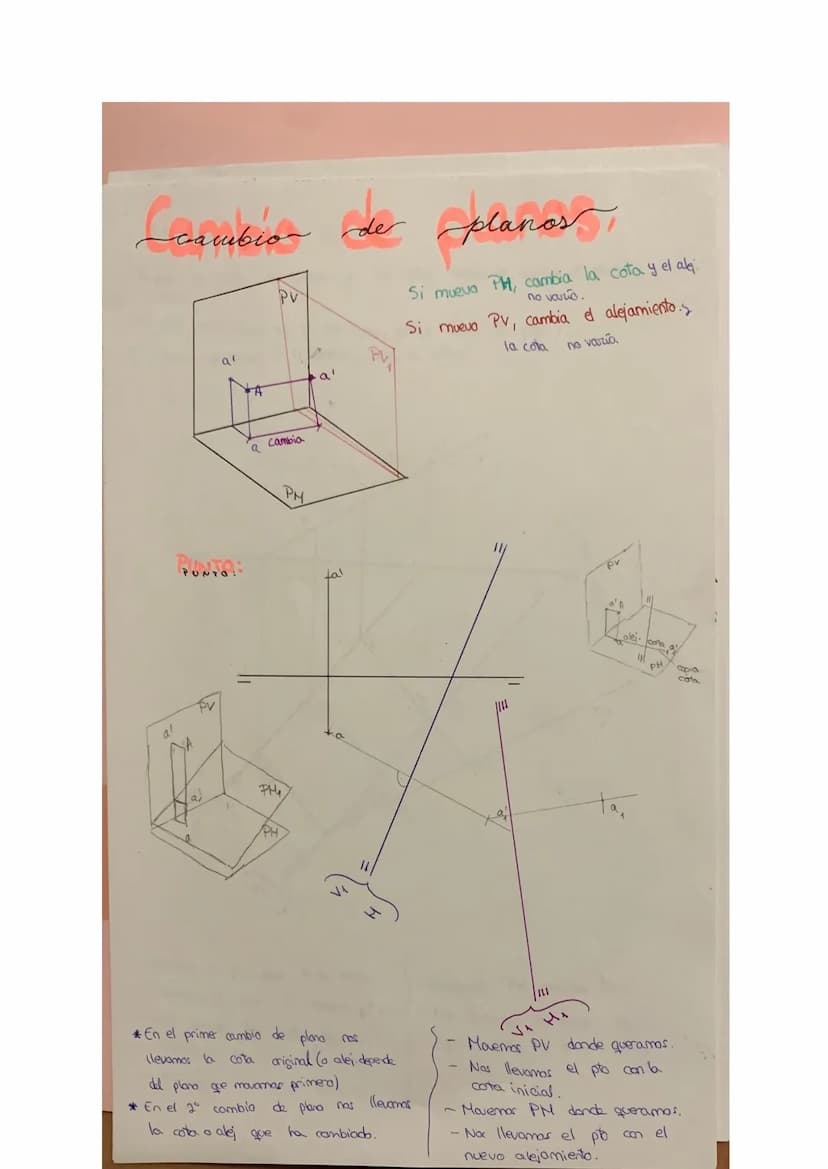 Cambio de planos.
cambio de planos
Si muevo PH, cambia la cota y el alej.
no varía.
Si muevo PV, cambia el alejamiento y
la cota no varía.
PV
PV1
a'
A
a'
a cambia
PH
PUNTO:
PUNTO:
a'
a
PV
a' A
a
alej. cota a'
PH
copia
cota
PV
a'
A
a'
PH1
PH
a
a1'
a1
V1
H
V1 H1
* En el primer cambio de plano nos
llevamos la cota original (o alej. depende
del plano que movamos primero)
* En el 2º cambio de plano nos llevamos
la cota o alej que ha cambiado.
- Movemos PV donde queramos.
- Nos llevamos el pto con la
cota inicial.
- Movemos PH donde queramos.
- Nos llevamos el pto con el
nuevo alejamiento.